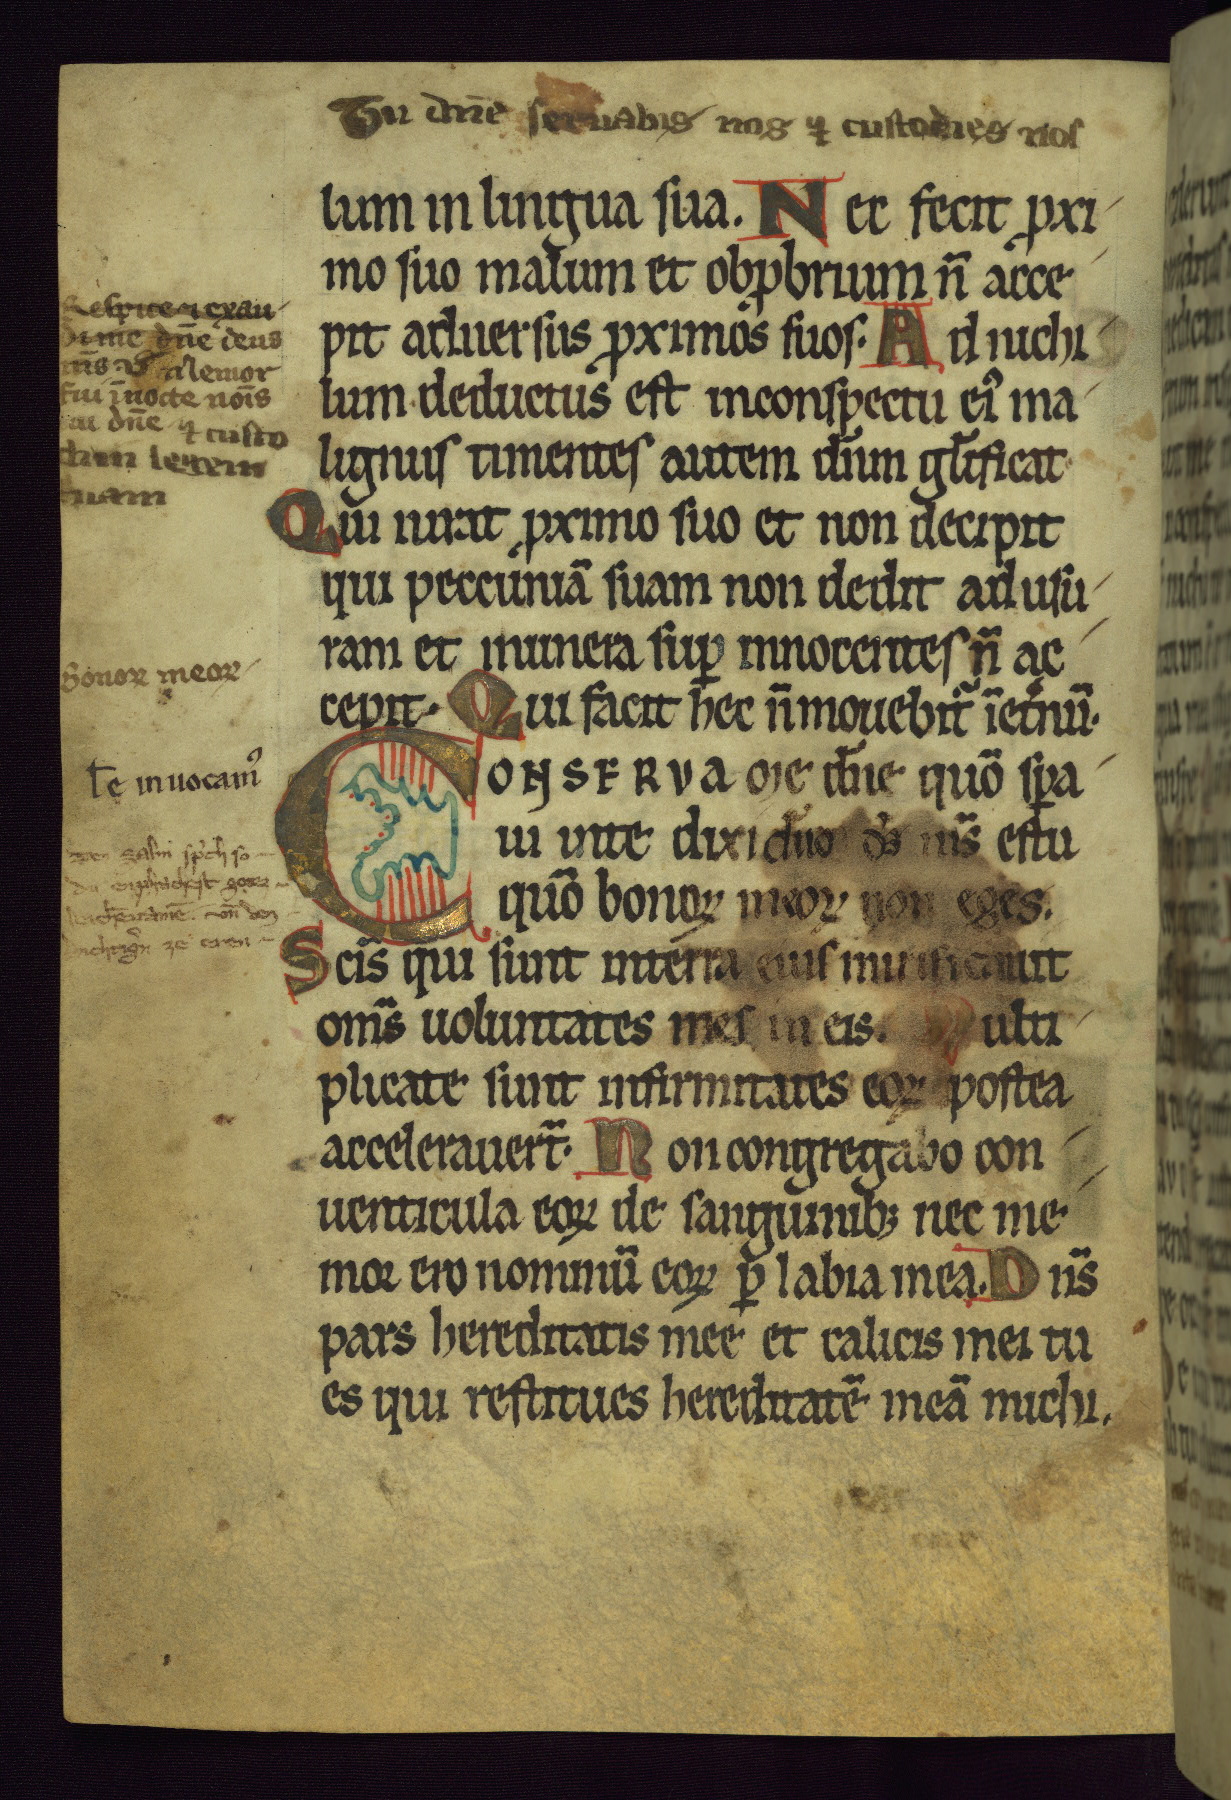 Tu dn̄e seruabis nos ⁊ custodies nos
lum in lingua sua. Nec fecit ꝓxi
mo suo malum et obꝓbrium n̄ acce
pit aduersus ꝓximos suos. Ad nichi
lum deductus est inconspectu eiꝰ ma
lignus timentes autem dn̄m gl̄ificat
Qui iurat ꝓximo suo et non decipit
qui peccuniā suam non dedit ad usu
ram et munera suꝑ innocentes n̄ ac
cepit. Qui facit hec n̄ mouebit᷑ īet̄nū.
CONSERVA me dn̄e quō spa
ui inte dixi dn̄o ds̄ ms̄ es tu
quō bonoꝝ meoꝝ non eges.
Scīs qui sunt interra eius mirificauit
om̄s uoluntates mes in eis. Multi
plicate sunt infirmitates eoꝝ postea
accelerauert̄. Non congregabo con
uenticula eoꝝ de sanguinibꝫ nec me
mor ero nominū eoꝝ ꝑ labia mea. Dn̄s
pars hereditatis mee et calicis mei tu
es qui restitues hereditatē meā michi.
Respice ⁊ exau
di me dn̄e deus
ms̄ Memor
fui ī nocte noīs
tui dn̄e ⁊ custo
diui legem
tuam
Bonoꝝ meoꝝ
Te inuocamꝰ